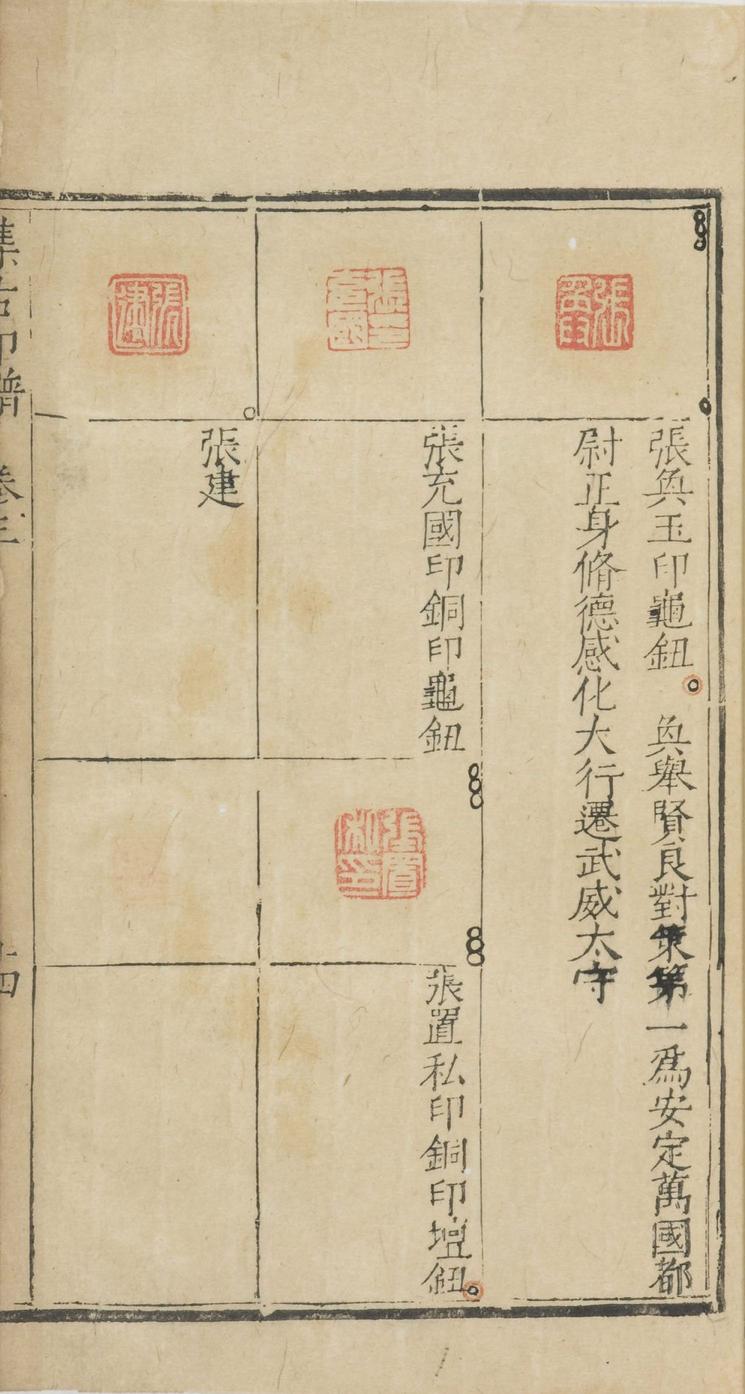 張奐玉印龜鈕　奐舉賢良對策第一爲安定萬國都
尉正身脩德感化大行遷武威太守
張充國印銅印龜鈕
張置
私印
張置私印銅印壇鈕
張
建
張建
集古印譜　卷三　十四